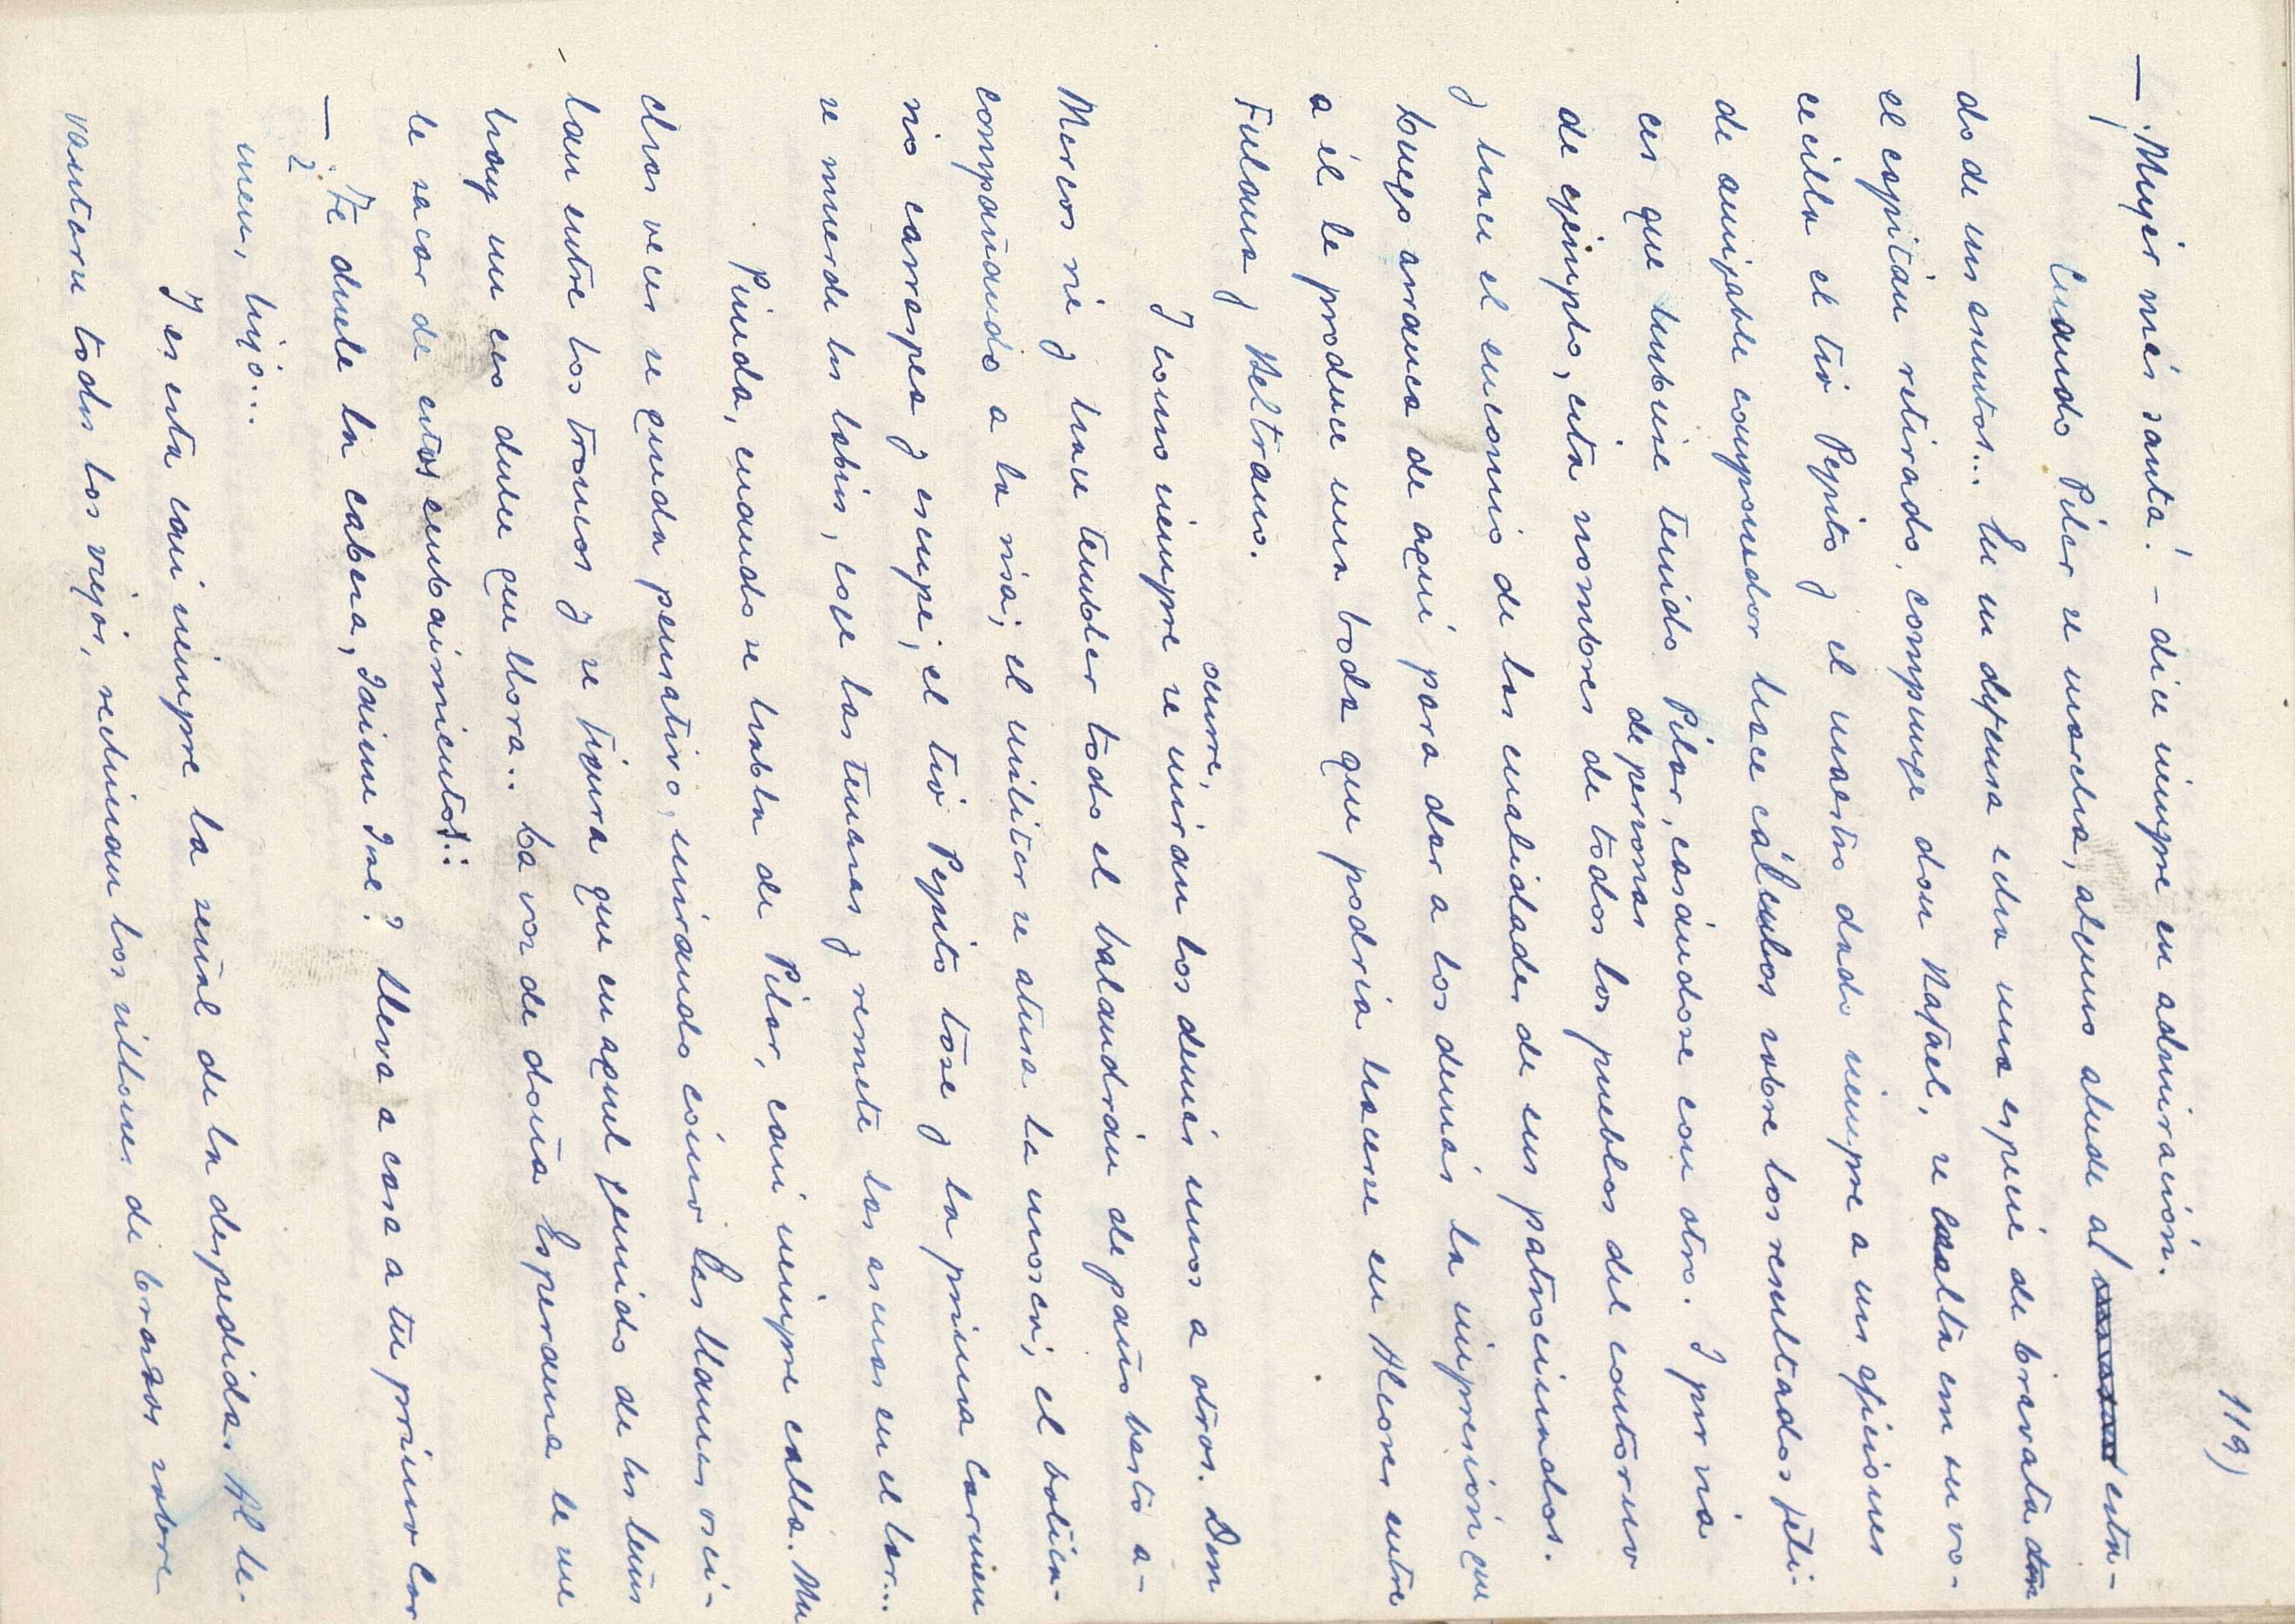 119)
— ¡Mujer más santa! – dice siempre en admiración.
Cuando Pilar se marcha, alguno alude al esta-
do de sus asuntos... En su defensa echa una especie de bravata don
el capitán retirado, compunge don Rafael, se exalta en su vo-
cecilla el tío Pepito y el maestro dado siempre a sus aficiones
de amigable componedor hace cálculos sobre los resultados feli-
ces que hubiese tenido Pilar, casándose con otro. Y por vía
de personas
de ejemplo, cita nombres de todos los pueblos del contorno
y hace el encomio de las cualidades de sus patrocinados.
Luego arranca de aquí para dar a los demás la impresión que
a él le produce una boda que podría hacerse en Alcores entre
Fulana y Beltrano.
ocurre,
Y como siempre se miran los demás unos a otros. Don
Marcos ríe y hace temblar todo el balandrán de paño basto a-
compañando a la risa; el militar se atusa la mosca; el botica-
rio carraspea y escupe; el tío Pepito tose y la prima Carmen
se muerde los labios, coge las tenazas y remete las ascuas en el lar...
Pineda, cuando se habla de Pilar, casi siempre calla. Mu
chas veces se queda pensativo, mirando cómo las llamas osci-
lan entre los troncos y se figura que en aquel gemido de los leños
hay un eco dulce que llora... La voz de doña Esperanza le sue
le sacar de estos embaimientos:
— ¿Te duele la cabeza, Jaime José? Lleva a casa a tu prima Car
men, hijo...
Y es esta casi siempre la señal de la despedida. Al le-
vantarse todos los viejos, rechinan los sillones de brazos sobre